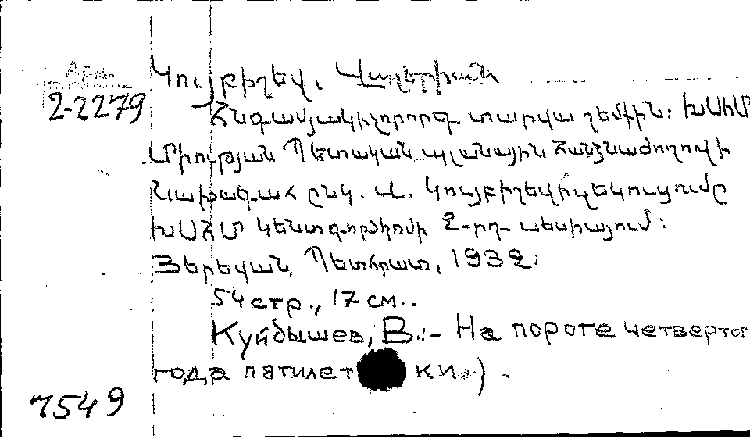 Արև.
Կույբիշև, Վալերիան
2-2279 Հնգամյակի չորրորդ տարվա շեմքին: ԽՍՀՄ
Միության Պետական պլանային հանձնաժողովի
նախագահ ընկ. Վ. Կույբիշևի զեկուցումը
ԽՍՀՄ Կենտգործկոմի 2-րդ սեսիայում:
Յերևան, Պետհրատ, 1932:
54 стр., 17 см..
Куйбышев, В.:- На пороге четвертог
года пятилетки.) .
7549